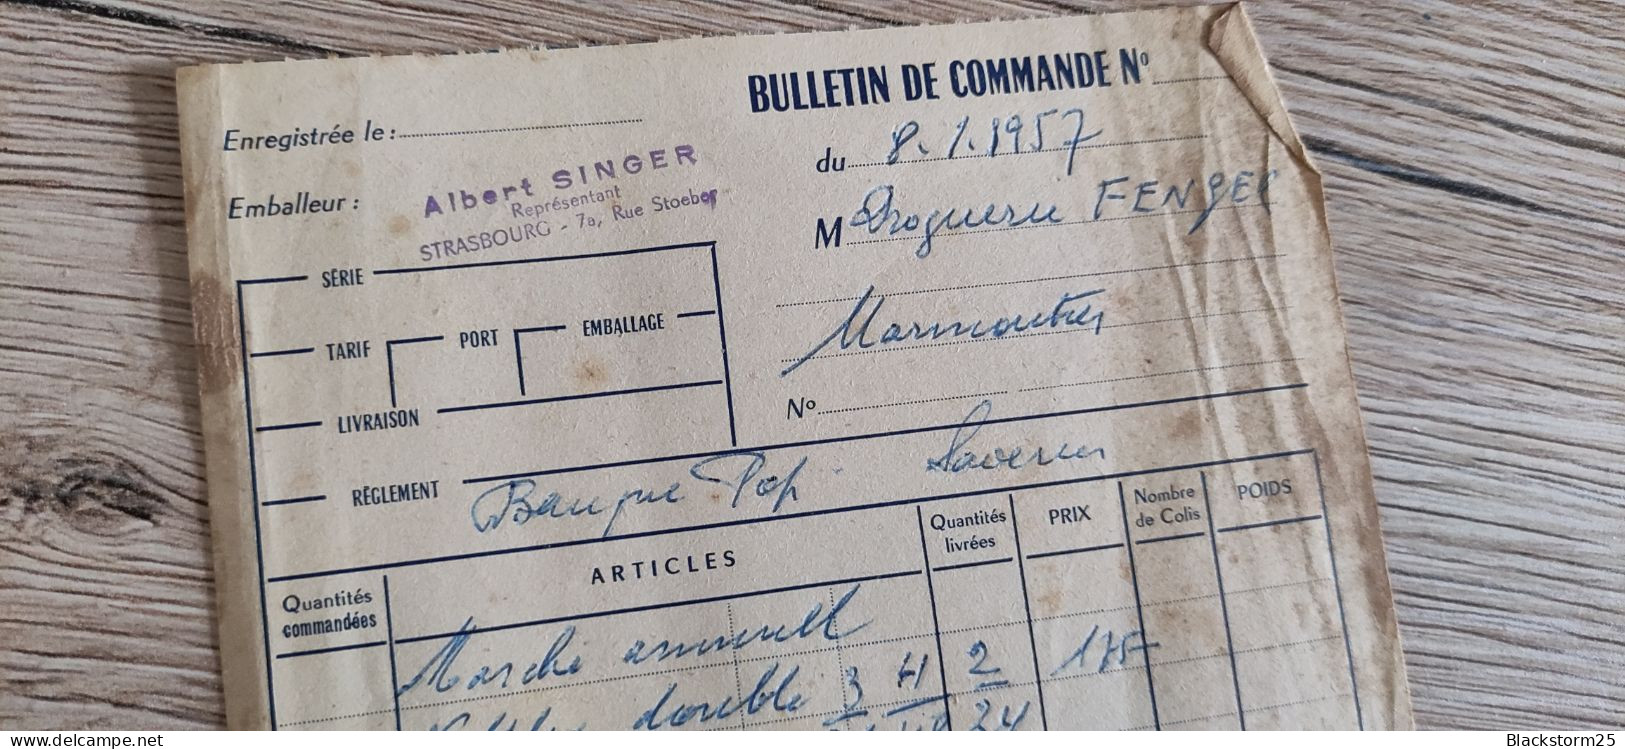 BULLETIN DE COMMANDE Nº
Enregistrée le :
du 8.1.1957
Emballeur :
Albert SINGER
Représentant
STRASBOURG - 7a, Rue Stoeber
M Droguerie FENGER
SÉRIE
TARIF
PORT
EMBALLAGE
Marmoutier
LIVRAISON
Nº
RÈGLEMENT
Banque Pop. Saverne
Quantités commandées
ARTICLES
Quantités livrées
PRIX
Nombre de Colis
POIDS
Marché annuel
double 3 4 2 175
24
www.delcampe.net
Blackstorm25